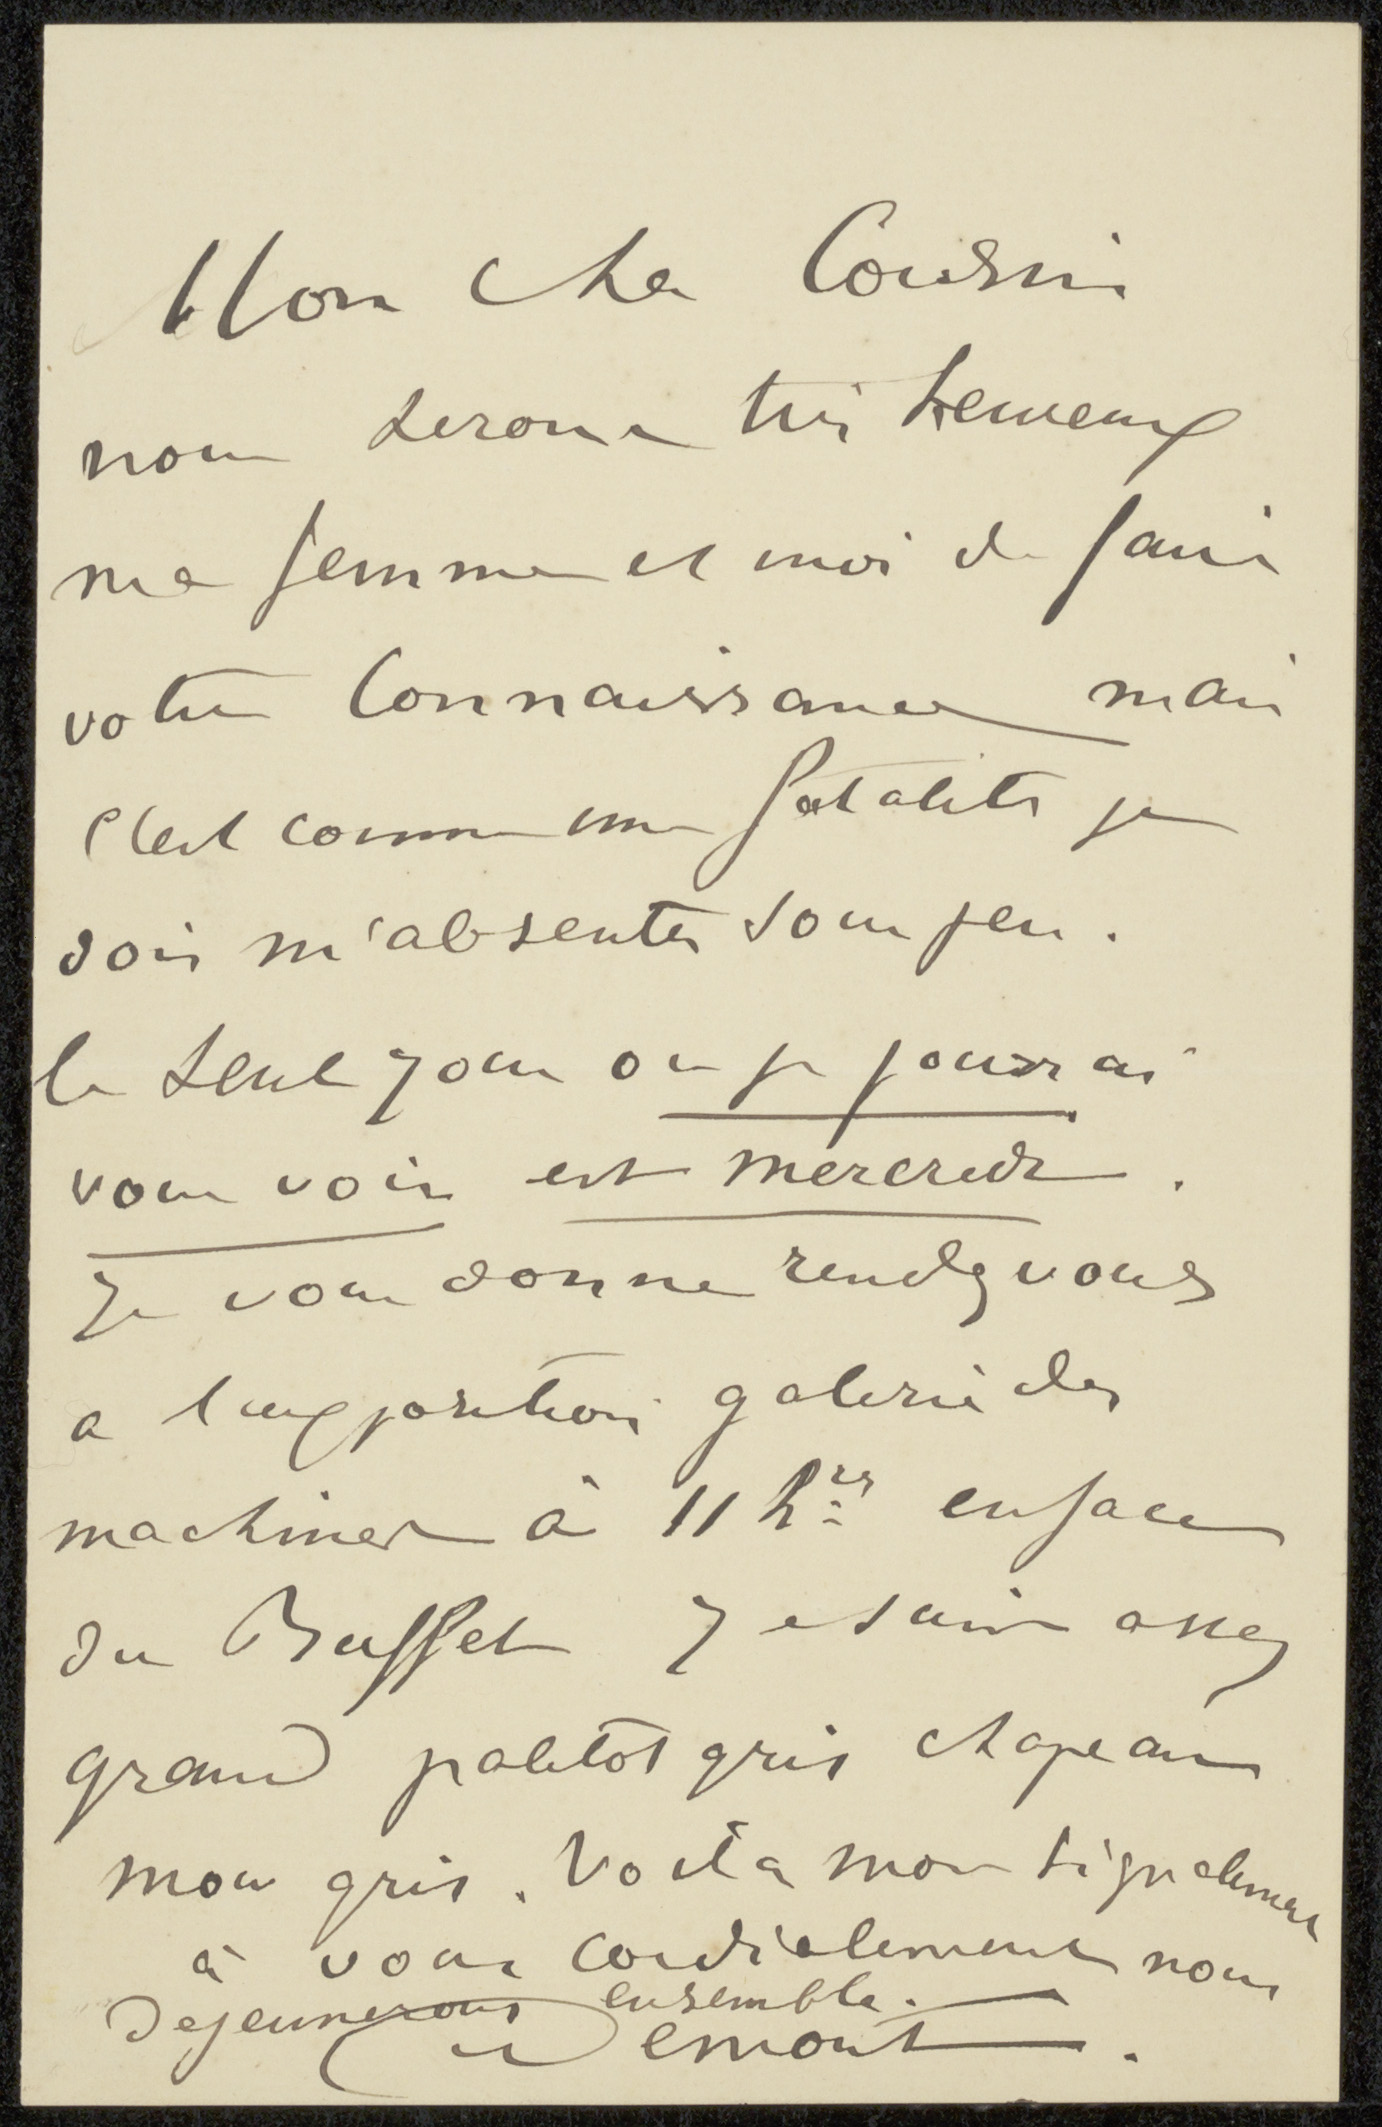 Mon cher Cousin
nous serons très heureux
ma femme et moi de faire
votre connaissance mais
c'est comme une fatalité je
dois m'absenter sous peu.
le seul jour ou je pourrai
vous voir est mercredi.
Je vous donne rendez vous
a l'exposition galerie des
machines à 11 hres en face
du Buffet Je suis assez
grand paletot gris chapeau
mou gris. Voila mon signalement
à vous cordialement nous
dejeunerons ensemble.
Demont.